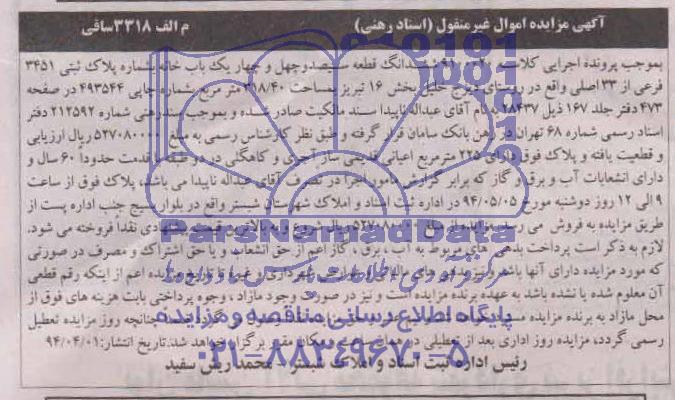 آگهی مزایده اموال غیرمنقول (اسناد رهنی) م الف ۳۳۱۸ساقی
بموجب پرونده اجرایی کلاسه ششدانگ قطعه سیصدوچهل و چهار یک باب خانه بشماره پلاک ثبتی ۳۴۵۱
فرعی از ۳۳اصلی واقع در روستای دیزج خلیل بخش ۱۶ تبریز بمساحت ۳۱۸/۴۰ متر مربع بشماره چاپی ۴۹۳۵۴۴ در صفحه
۴۷۳ دفتر جلد ۱۶۷ ذیل ۲۸۴۳۷ بنام آقای عبداله ناپیدا سند مالکیت صادر شده و بموجب سند رهنی شماره ۲۱۲۵۹۲ دفتر
اسناد رسمی شماره ۶۸ تهران در رهن بانک سامان قرار گرفته و طبق نظر کارشناس رسمی به مبلغ ۵۲۷۰۸۰۰۰۰ ریال ارزیابی
و قطعیت یافته و پلاک فوق دارای ۲۲۵ مترمربع اعیانی قدیمی ساز آجری و کاهگلی در دو طبقه با قدمت حدودا ۶۰ سال و
دارای انشعابات آب و برق و گاز که برابر گزارش مامور اجرا در تصرف آقای عبداله ناپیدا می باشد، پلاک فوق از ساعت
۹ الی ۱۲ روز دوشنبه مورخ ۹۴/۰۵/۰۵ در اداره ثبت اسناد و املاک شهرستان شبستر واقع در بلوار بسیج جنب اداره پست از
طریق مزایده به فروش می رسد. مزایده از مبلغ ریال شروع و به بالاترین قیمت پیشنهادی نقدا فروخته می شود.
لازم به ذکر است پرداخت بدهی های مربوط به آب، برق، گاز اعم از حق انشعاب و یا حق اشتراک و مصرف در صورتی
که مورد مزایده دارای آنها باشد و نیز بدهی های مالیاتی و عوارض شهرداری و غیره تا تاریخ مزایده اعم از اینکه رقم قطعی
آن معلوم شده یا نشده باشد به عهده برنده مزایده است و نیز در صورت وجود مازاد، وجوه پرداختی بابت هزینه های فوق از
محل مازاد به برنده مزایده مسترد خواهد شد چنانچه روز مزایده تعطیل
رسمی گردد، مزایده روز اداری بعد از تعطیلی در همان ساعت و مکان مقرر برگزار خواهد شد.تاریخ انتشار: ۹۴/۰۴/۰۱
رئیس اداره ثبت اسناد و املاک شبستر - محمد ریش سفید
ParsNamadData
پایگاه اطلاع رسانی مناقصه و مزایده
۰۲۱-۸۸۳۴۹۶۷۰-۵